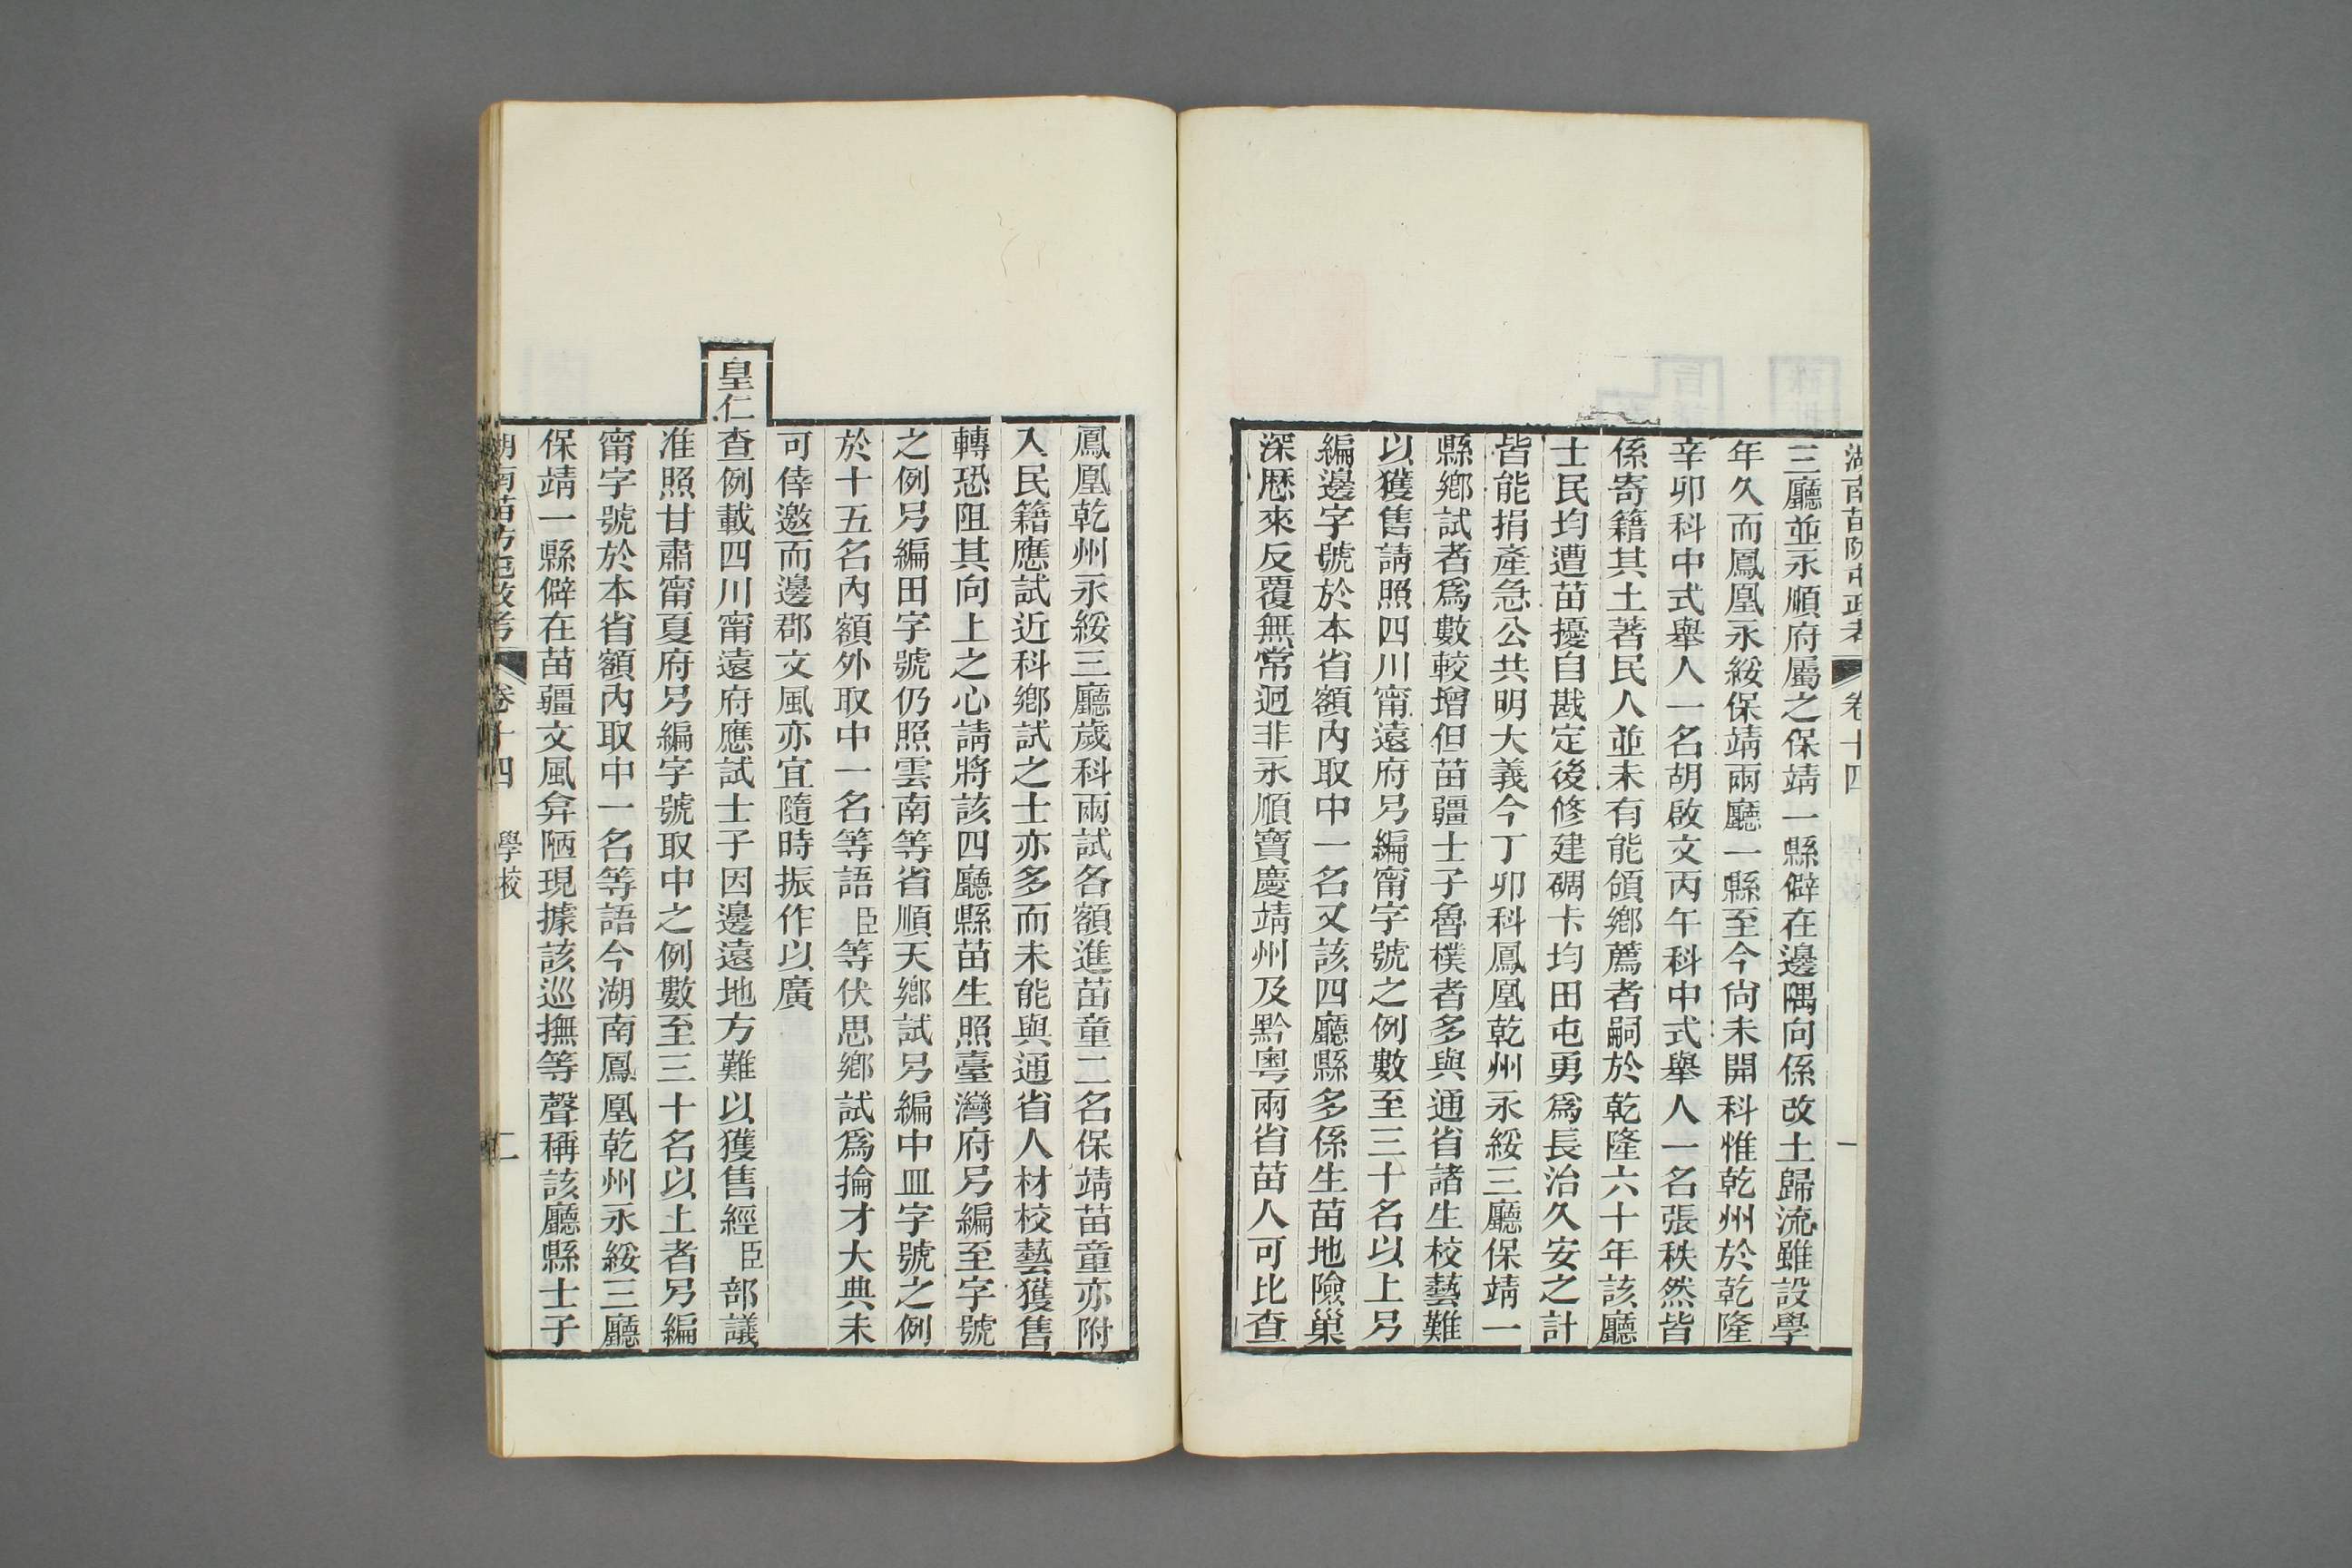 湖南苗防屯政考 卷十四 一
三廳並永順府屬之保靖一縣僻在邊隅向係改土歸流雖設學
年久而鳳凰永綏保靖兩廳一縣至今尙未開科惟乾州於乾隆
辛卯科中式舉人一名胡啟文丙午科中式舉人一名張秩然皆
係寄籍其土著民人並未有能領鄉薦者嗣於乾隆六十年該廳
士民均遭苗擾自戡定後修建碉卡均田屯勇爲長治久安之計
皆能捐產急公共明大義今丁卯科鳳凰乾州永綏三廳保靖一
縣鄉試者爲數較增但苗疆士子魯樸者多與通省諸生校藝難
以獲售請照四川甯遠府另編甯字號之例數至三十名以上另
編邊字號於本省額內取中一名又該四廳縣多係生苗地險巢
深歷來反覆無常迥非永順寶慶靖州及黔粵兩省苗人可比查
鳳凰乾州永綏三廳歲科兩試各額進苗童二名保靖苗童亦附
入民籍應試近科鄉試之士亦多而未能與通省人材校藝獲售
轉恐阻其向上之心請將該四廳縣苗生照臺灣府另編至字號
之例另編田字號仍照雲南等省順天鄉試另編中皿字號之例
於十五名內額外取中一名等語臣等伏思鄉試爲掄才大典未
可倖邀而邊郡文風亦宜隨時振作以廣
皇仁查例載四川甯遠府應試士子因邊遠地方難以獲售經臣部議
准照甘肅甯夏府另編字號取中之例數至三十名以上者另編
甯字號於本省額內取中一名等語今湖南鳳凰乾州永綏三廳
保靖一縣僻在苗疆文風弇陋現據該巡撫等聲稱該廳縣士子
湖南苗防屯政考 卷十四 學校 二